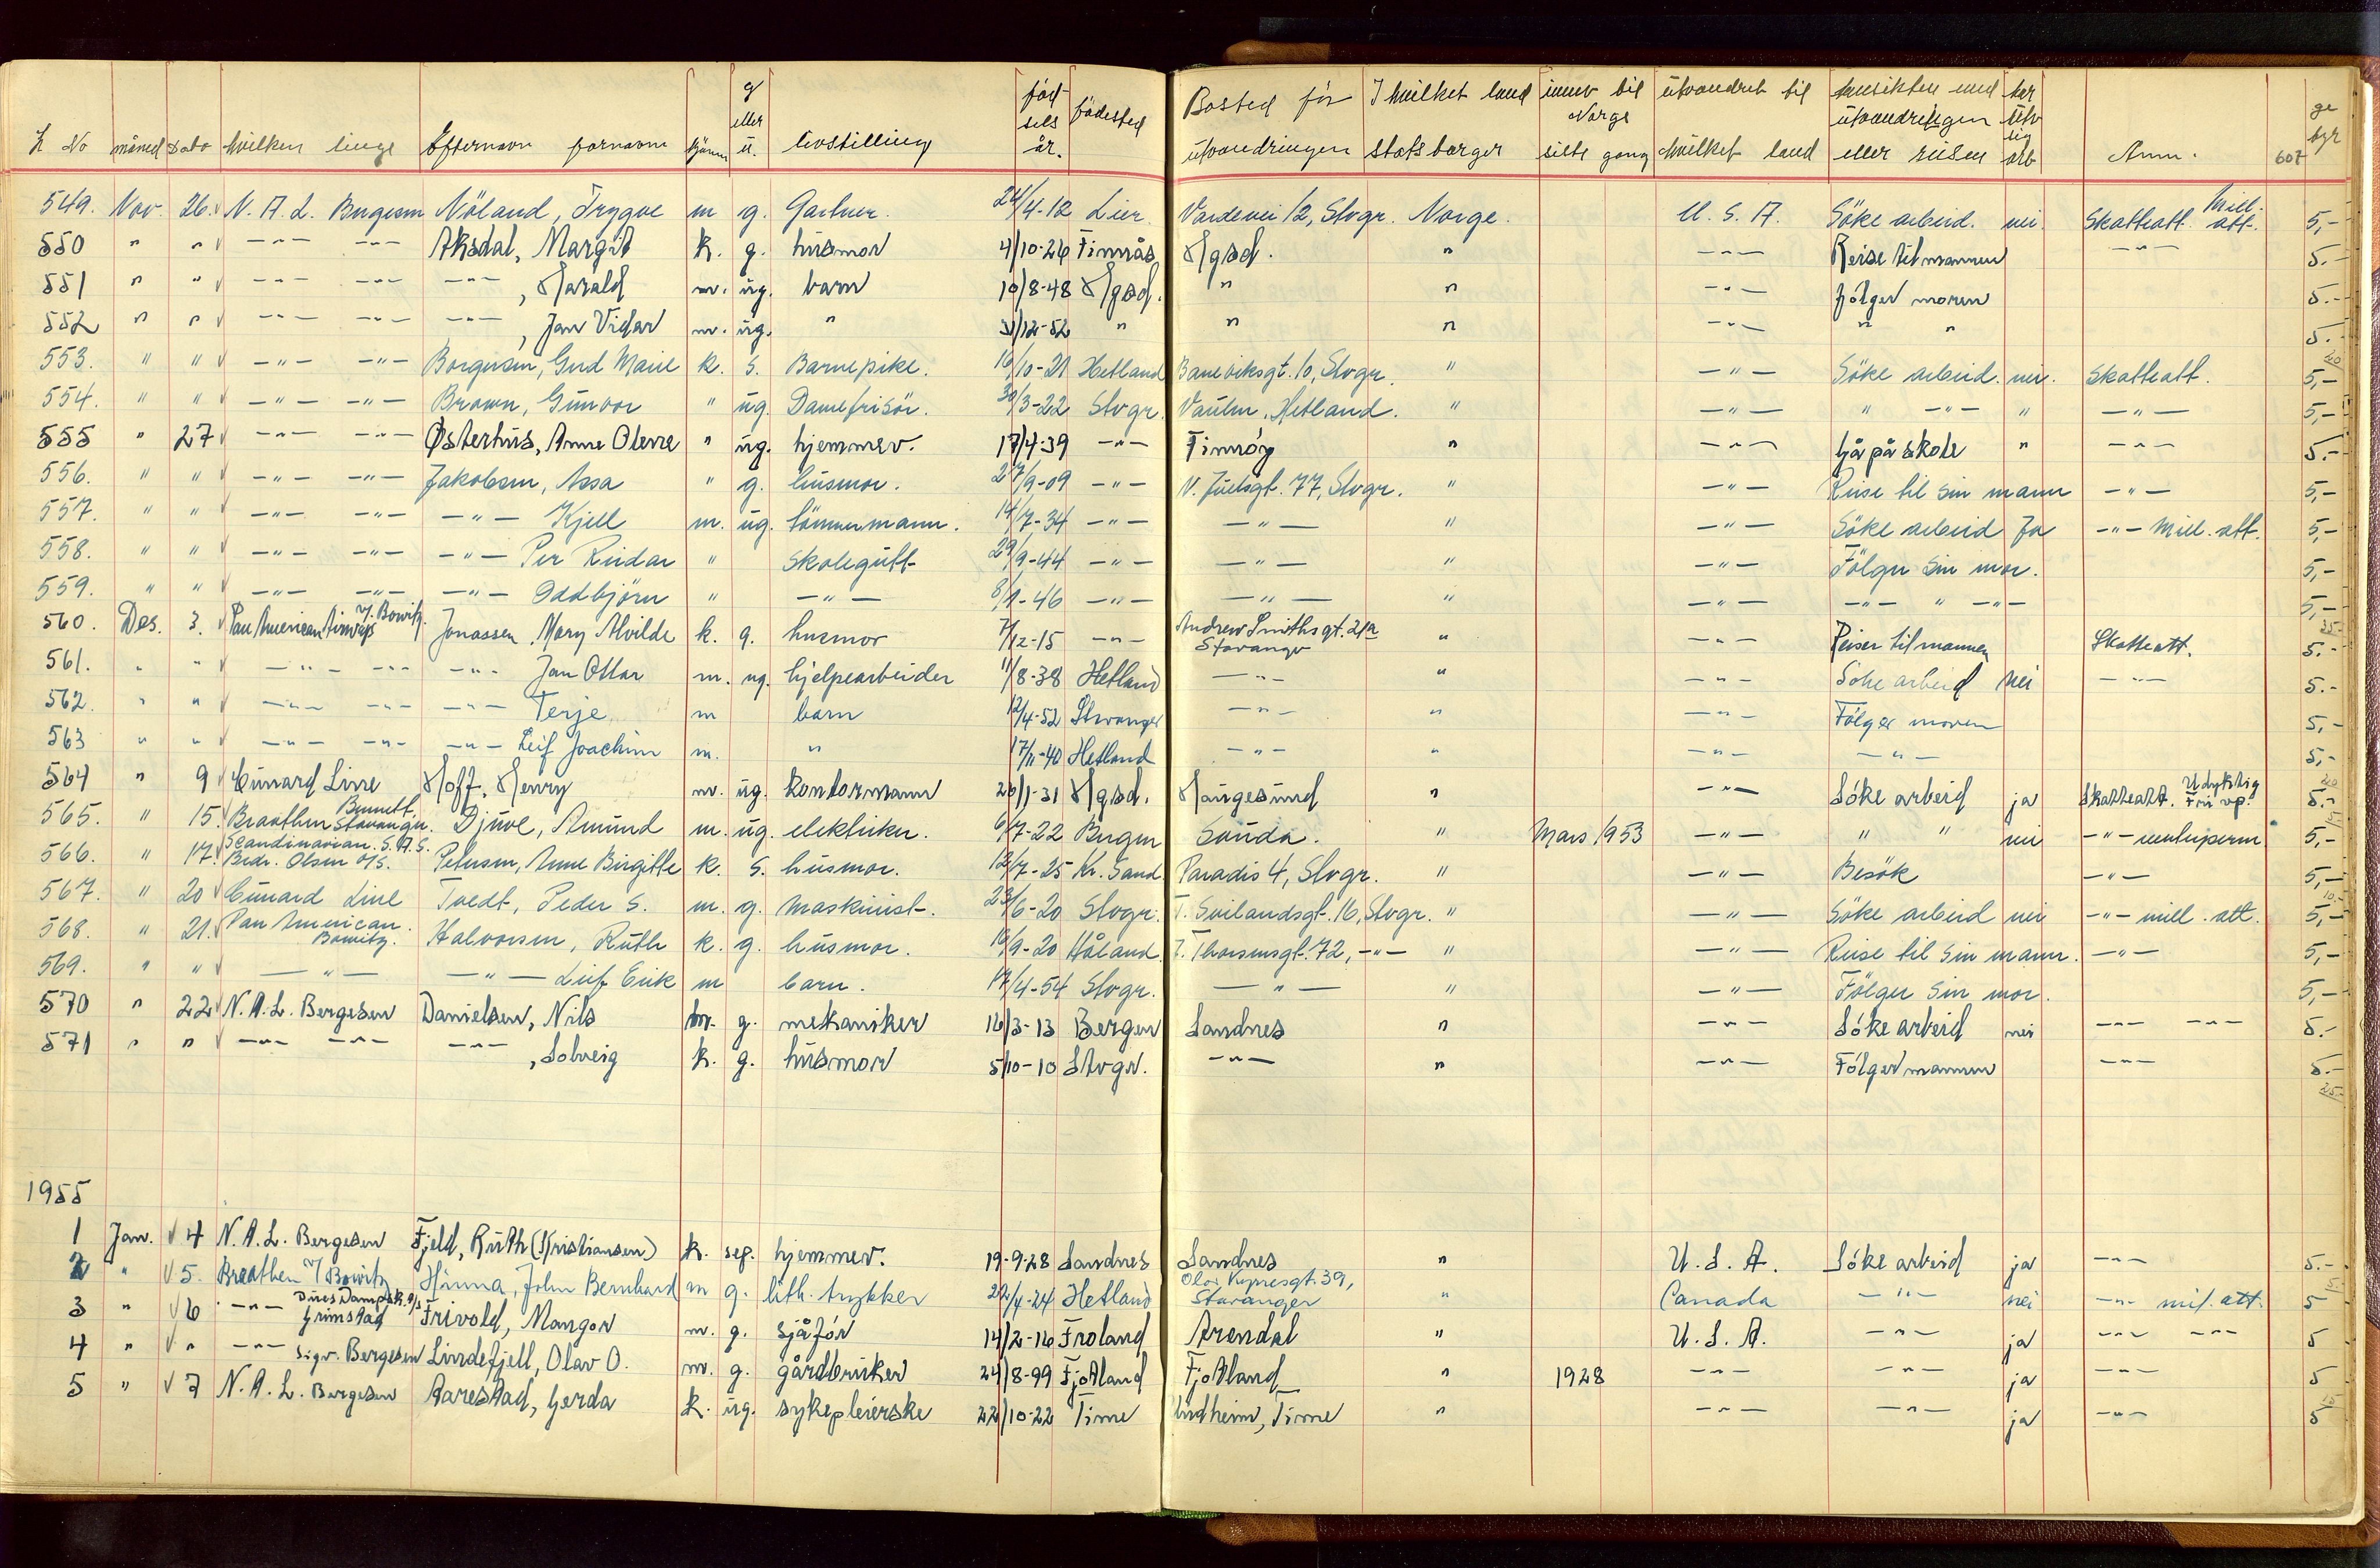 L No måned Dato hvilken linje Efternavn fornavn kjönn g eller u. livsstilling födsels år. födested Bosted för utvandringen I hvilket land statsborger innv til Norge siste gang utvandret til hvilket land hensikten med utvandringen eller reisen har utv lig arb Anm. 607 ge byr
549. Nov. 26. N. A. L. Bergesen Nöland, Trygve m g. Gartner. 24/4-12 Lier Vardevei 12, Stvgr. Norge. U. S. A. Söke arbeid. nei. Skatteatt. Mill. att. 5,-
550 " " -"- -"- Aksdal, Margit k. g. husmor 4/10-26 Finnås Hgsd. " -"- Reise til mannen -"- 5.-
551 " " -"- -"- -"-, Harald m. ug. barn 10/8-48 Hgsd. " " -"- følger moren 5.-
552 " " -"- -"- -"-, Jan Vidar m. ug. " 31/12-52 " " " -"- " " 5.-
553. " " -"- -"- Borgersen, Gud Marie k. s. Barnepike. 16/10-21 Hetland Banaviksgt. 10, Stvgr. " -"- Söke arbeid. nei. Skatteatt. 5,-
554. " " -"- -"- Brown, Gunvor " ug. Damefrisör. 30/3-22 Stvgr. Vaulen, Hetland. " -"- " -"- " -"- 5,-
555 " 27 -"- -"- Østerhus, Anne Olene " ug. hjemmev. 17/4-39 -"- Finnöy " -"- Gå på skole " -"- 5.-
556. " " -"- -"- Jakobsen, Assa " g. husmor. 27/9-09 -"- N. Juelsgt. 77, Stvgr. " -"- Reise til sin mann -"- 5,-
557. " " -"- -"- -"- Kjell m. ug. tömmermann. 14/7-34 -"- -"- " -"- Söke arbeid Ja -"- Mill. att. 5,-
558. " " -"- -"- -"- Per Reidar " skolegutt 29/9-44 -"- -"- " -"- Fölger sin mor. 5,-
559. " " -"- -"- -"- Oddbjörn " -"- 8/1-46 -"- -"- " -"- -"- " -"- 5,-
560. Des. 3. Pan American Airways v/ Bowitz. Jonassen, Mary Alvilde k. g. husmor 7/12-15 -"- Andrew Smithsgt. 21a Stavanger " -"- Reiser til mannen Skatteatt. 5.-
561. " " -"- -"- -"- Jan Ottar m. ug. hjelpearbeider 11/8-38 Hetland -"- " -"- Söke arbeid Nei -"- 5.-
562. " " -"- -"- -"- Terje m barn 12/4-52 Stavanger -"- " -"- Følger moren 5,-
563 " " -"- -"- -"- Leif Joachim m. " 17/11-40 Hetland -"- " -"- -"- 5,-
564 " 9 Cunard Line Hoff, Henry m. ug. kontormann 20/1-31 Hgsd. Haugesund " -"- Söke arbeid ja Skatteatt. Udyktig Fri vp. 5.-
565. " 15. Braathen Bennett. Stavanger. Djuve, Amund m. ug. elektriker. 6/7-22 Bergen Sauda. " Mars 1953 -"- " " nei -"- 5,-
566. " 17. Scandinavian. S. A. S. Brdr. Olsen A/S. Petersen, Anne Birgitte k. s. husmor. 12/7-25 Kr. Sand Paradis 4, Stvgr. " -"- Besök -"- 5,-
567. " 20 Cunard Line Tvedt, Peder S. m. g. Maskinist. 23/6-20 Stvgr. T. Svilandsgt. 16, Stvgr. " -"- Söke arbeid nei -"- mill. att. 5,-
568. " 21. Pan American. Bowitz. Halvorsen, Ruth k. g. husmor. 16/9-20 Håland. T. Thorsensgt. 72, -"- " -"- Reise til sin mann. -"- 5,-
569. " " -"- -"- Leif Erik m barn. 17/4-54 Stvgr. -"- " -"- Fölger sin mor. 5,-
570 " 22 N. A. L. Bergesen Danielsen, Nils m. g. mekaniker 16/3-13 Bergen Sandnes " -"- Söke arbeid nei -"- -"- 5.-
571 " " -"- -"- -"-, Solveig k. g. husmor 5/10-10 Stvgr. -"- " -"- Følger mannen -"- 5.-
25.-
1955
1 Jan. 4 N. A. L. Bergesen Fjeld, Ruth (Kristiansen) k. sep. hjemmev. 19-9-28 Sandnes Sandnes " U. S. A. Söke arbeid ja -"- 5.-
2 " 5. Braathen v/ Bowitz Hinna, John Bernhard m g. lith. trykker 22/4-24 Hetland Olav Kyrresgt. 39, Stavanger " Canada -"- nei -"- mil. att. 5
3 " 6 -"- Dues Dampsk. A/S Grimstad Frivold, Mangor m. g. sjåfør 14/2-16 Froland Arendal " U. S. A. -"- ja -"- -"- 5
4 " " -"- Sigv. Bergesen Lindefjell, Olav O. m. g. gårdbruker 24/8-99 Fjotland Fjotland " 1928 -"- -"- ja -"- 5
5 " 7 N. A. L. Bergesen Aarestad, Gerda k. ug. sykepleierske 22/10-22 Time Undheim, Time " -"- -"- ja -"- 5